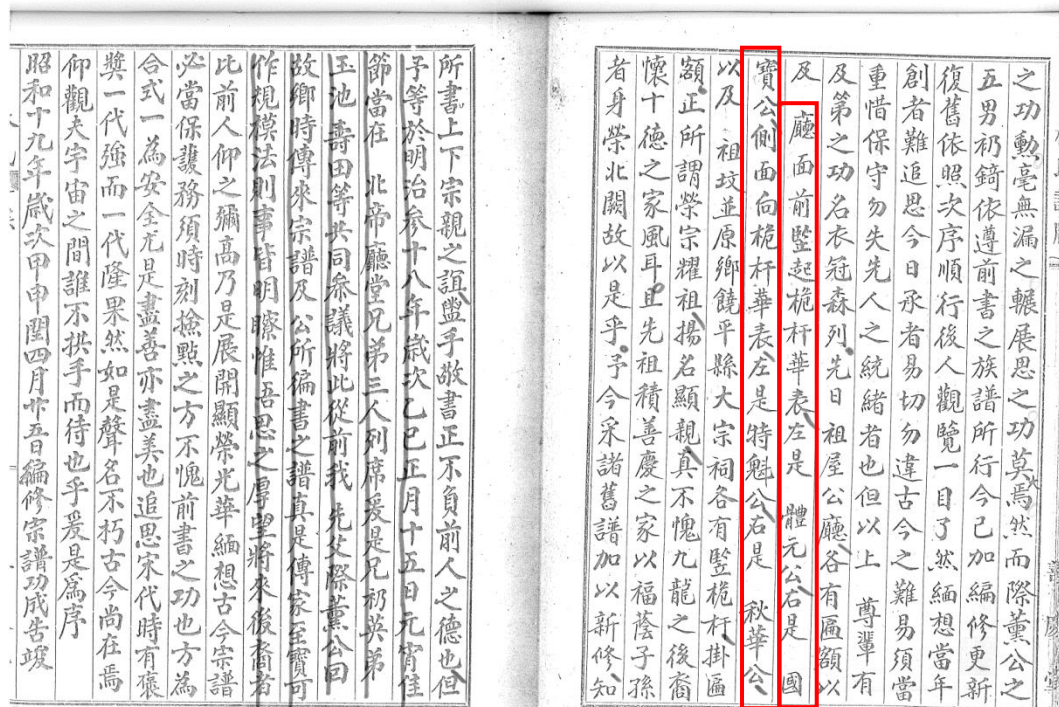 之功勲毫無漏之輾展思之功莫大焉然而際薰公之
五男礽錡依遵前書之族譜所行今已加編修更新
復舊依照次序順行後人觀覽一目了然緬想當年
創者難追思今日承者易切勿違古今之難易須當
重惜保守勿失先人之統緒者也但以上 尊輩有
及第之功名衣冠森列先日祖屋公廳各有匾額以
及 廳面前竪起桅杆華表左是 體元公右是 國
寶公側面向桅杆華表左是特魁公右是 秋華公
以及 祖坟並原鄉饒平縣大宗祠各有竪桅杆掛匾
額正所謂榮宗耀祖揚名顯親真不愧九龍之後裔
懷十德之家風耳且先祖積善慶之家以福蔭子孫
者身榮北闕故以是乎予今采諸舊譜加以新修知
所書上下宗親之誼盥手敬書正不負前人之德也但
予等於明治參十八年歲次乙巳正月十五日元宵佳
節當在 北帝廳堂兄弟三人列席爰是兄礽英弟
玉池 壽田等共同參議將此從前我 先父際薰公回
故鄉時傳來宗譜及 公所編書之譜真是傳家至寶可
作規模法則事皆明瞭惟吾思之厚望將來後裔者
比前人仰之彌高乃是展開顯榮光華緬想古今宗譜
必當保護務須時刻撿點之方不愧前書之功也方為
合式一為安全尤是盡善亦盡美也追思宋代時有褒
獎一代強而一代隆果然如是聲名不朽古今尚在焉
仰觀夫宇宙之間誰不拱手而待也乎爰是爲序
昭和十九年歲次甲申閏四月廿五日編修宗譜功成告竣